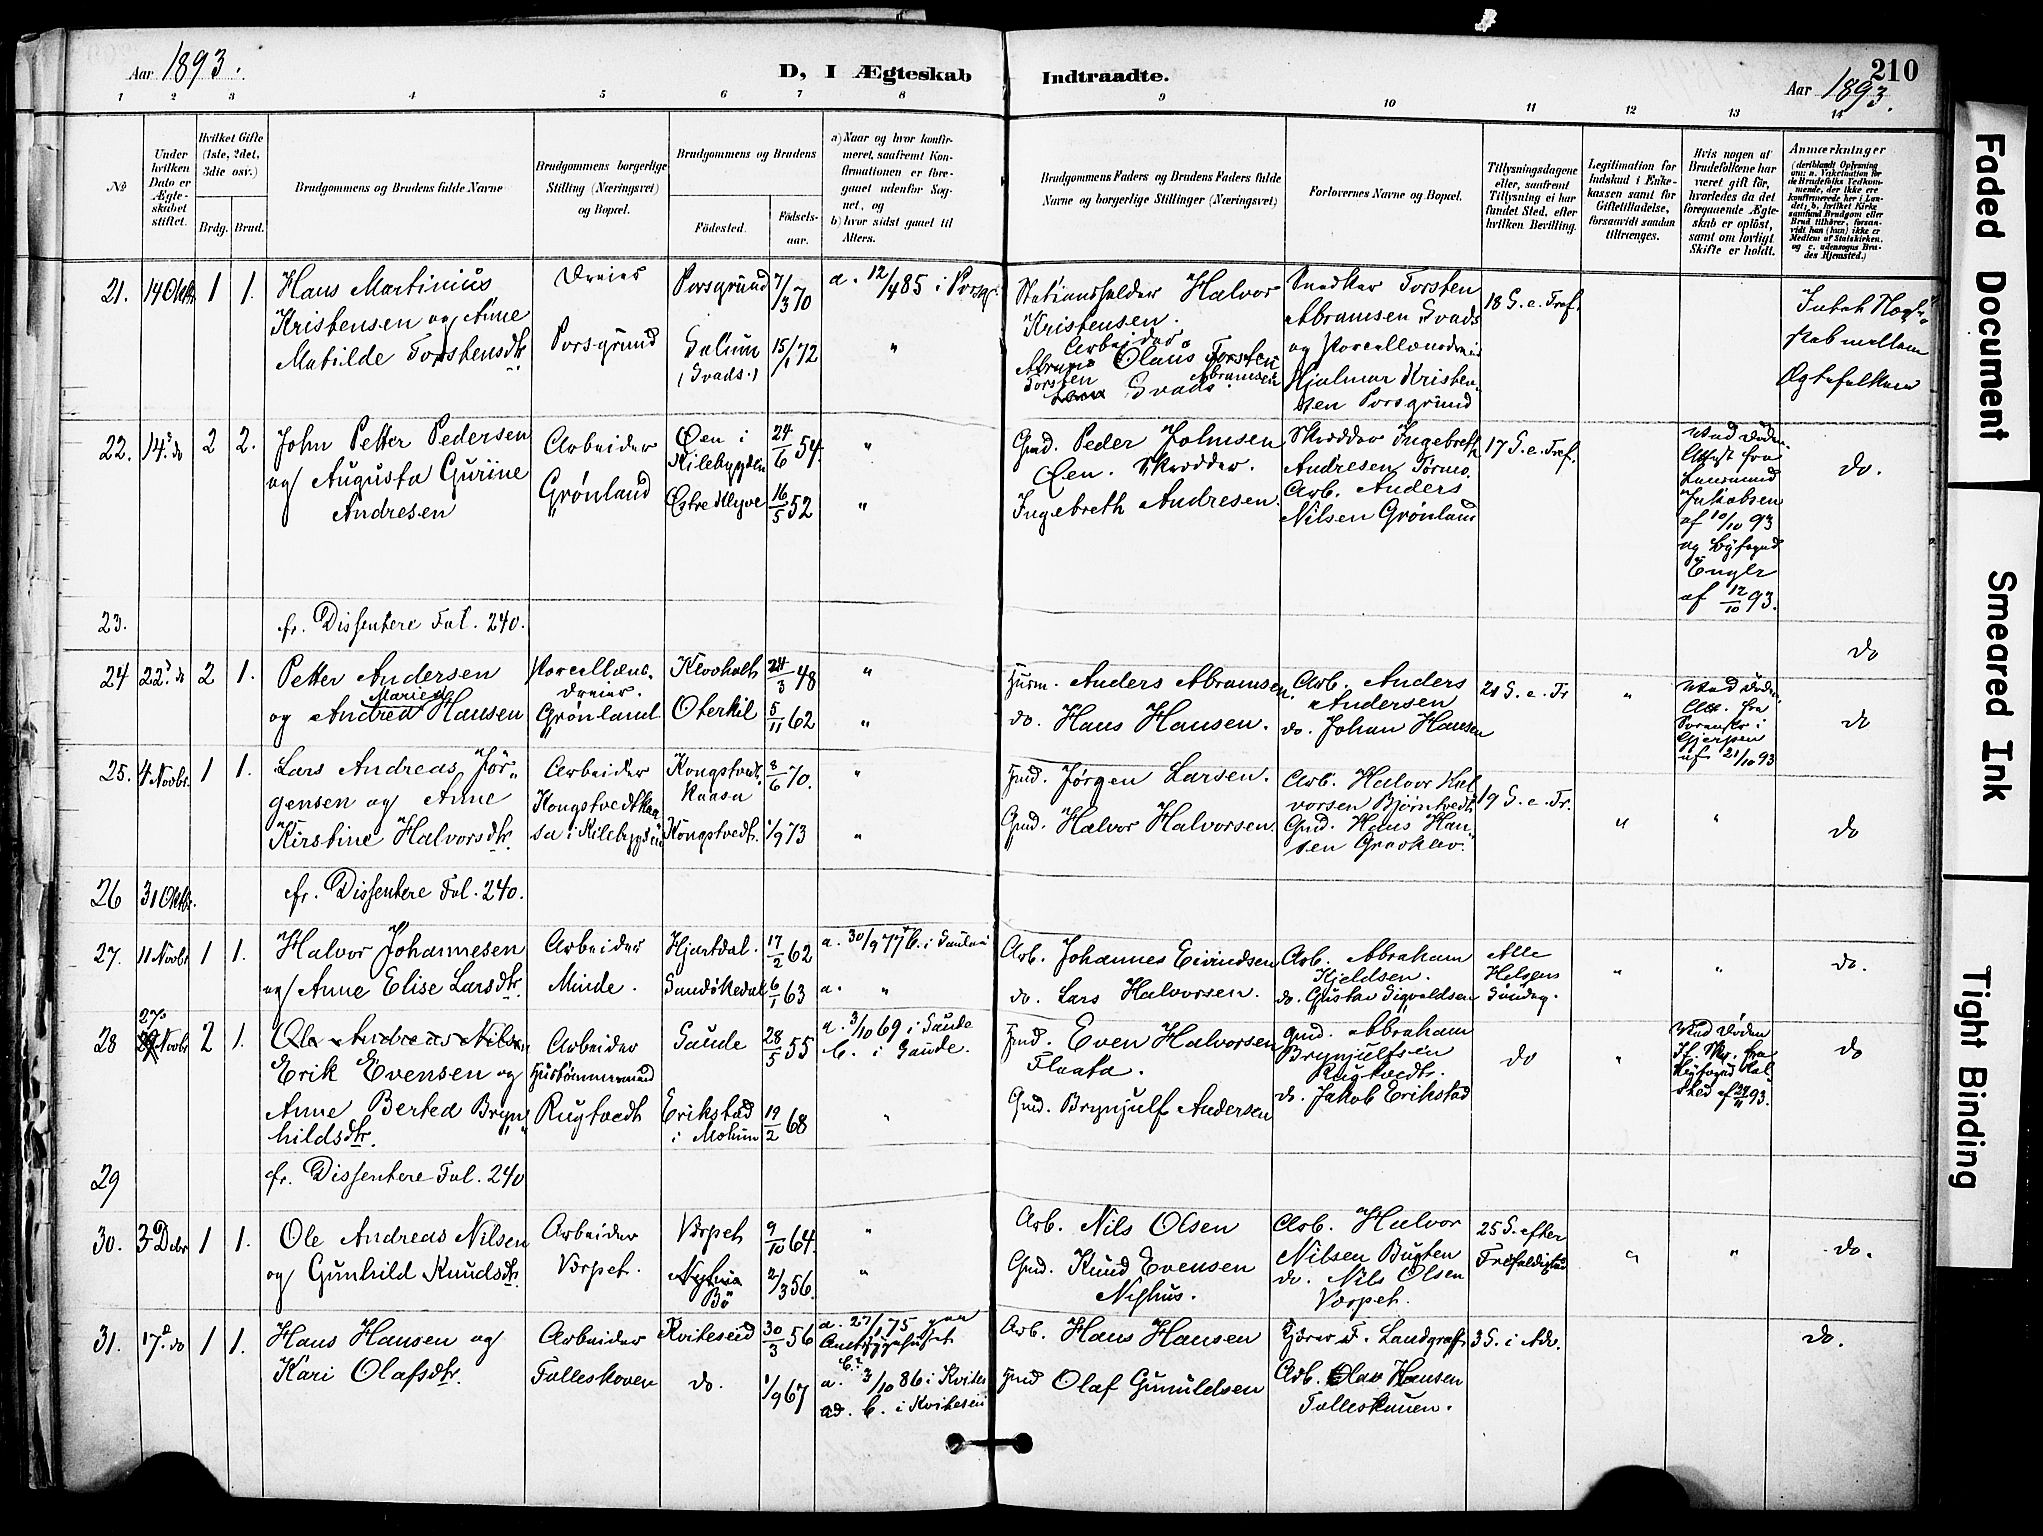 Aar 1893.
D, I Ægteskab
Indtraadte.
Aar 1893.
210
1 2 3 4 5 6 7 8 9 10 11 12 13 14
No
Under hvilken Dato er Ægteskabet stiftet.
Hvilket Gifte (1ste, 2det, 3die osv.)
Brdg. Brud.
Brudgommens og Brudens fulde Navne
Brudgommens borgerlige Stilling (Næringsvei) og Bopæl.
Brudgommens og Brudens
Fødested.
Fødselsaar.
a) Naar og hvor konfirmeret, saafremt Konfirmationen er foregaaet udenfor Sognet, og
b) hvor sidst gaaet til Alters.
Brudgommens Faders og Brudens Faders fulde Navne og borgerlige Stillinger (Næringsvei)
Forlovernes Navne og Bopæl.
Tillysningsdagene eller, saafremt Tillysning ei har fundet Sted, efter hvilken Bevilling.
Legitimation for Indskud i Enkekassen samt for Giftetilladelse, forsaavidt saadan tiltrænges.
Hvis nogen af Brudefolkene har været gift før, hvorledes da det foregaaende Ægteskab er opløst, samt om lovligt Skifte er holdt.
Anmærkninger
(deriblandt Oplysning om: a. Vaksination for de Brudefolks Vedkommende, der ikke ere konfirmerede her i Landet; b. hvilket Kirkesamfund Brudgom eller Brud tilhører, forsaavidt han (hun) ikke er Medlem af Statskirken, og c. udensogns Brudes Hjemsted.)
21. 14 Oktbr 1 1. Hans Martinius
Kristensen og Anne
Matilde Torstensdtr.
Dreier
Porsgrund
Porsgrund 7/3 70
Solum (Svads.) 15/1 72
a. 12/4 85 i Porsg.
"
Stationsholder Halvor
Kristensen.
Arbeider
Olaus Torsten
Torsten Abramsen
Svads.
Snedker Torsten
Abramsen Svads
og Porcellænsdreier
Hjalmar Kristensen
Porsgrund
18 S. e. Tref.
Intet Slægtskab mellem
Ægtefolkene
22. 14. do 2 2. John Petter Pedersen
og Augusta Gurine
Andresen
Arbeider
Grønland
Øen i
Kilebygden 24/6 54.
Østre Klyve 16/5 52
"
"
Gmd. Peder Johnsen
Øen. Skrædder.
Ingebreth Andresen.
Skrædder Ingebreth
Andresen Tørmo.
Arb. Anders
Nilsen Grønland
17 S. e. Tref.
Ved Døden.
Attest fra
Lensmand
Jakobsen
af 10/10 93
og Byfogd
Engle
af 12/10 93.
do.
23.
cfr. Dissentere Fol. 240.
do
24 22. do 2 1. Petter Andersen
og Andrea Maried Hansen
Porcellænsdreier.
Grønland
Klovholt 24/3 48
Oterkil 5/11 62
"
"
Husm. Anders Abramsen
do. Hans Hansen.
Arb. Anders
Andersen
do. Johan Hansen
21 S. e. Tr
"
Ved Døden.
Att. fra
Sorenskr. i
Gjerpen
af 21/10 93
do
25. 4 Novbr. 1 1. Lars Andreas Jørgensen og Anne
Kirstine Halvorsdtr.
Arbeider
Kongstvedtkaasa i Kilebygden
Kongstvedtkaasa 8/6 70.
Kongstvedt. 1/9 73
"
"
Gmd. Jørgen Larsen.
Gmd. Halvor Halvorsen.
Arb. Halvor Halvorsen Bjørntvedt
Gmd. Hans Hansen Gravklev.
19 S. e. Tr.
"
"
do
26 31 Oktbr. cfr. Dissentere Fol. 240.
27. 11 Novbr 1 1. Halvor Johannesen
og Anne Elise Larsdtr.
Arbeider
Minde.
Hjartdal. 17/2 62
Sandøkedal 6/1 63
a. 30/9 77 b. i Sauland
a. "
Arb. Johannes Eivindsen
do. Lars Halvorsen.
Arb. Abraham
Kjeldsen.
do. Gustav Sigvaldsen
Alle
Helgens
Søndag.
"
"
do.
28 27 Novbr 2 1. Ole Andreas Nilsen
Erik Evensen og
Anne Berted Brynhildsdtr.
Arbeider
Hustømmermand
Rugtvedt
Saude 28/5 55
Erikstad
i Molum 19/2 68
a. 3/10 69 i Saude
b. i Saude.
"
Gmd. Even Halvorsen
Flaata.
Gmd. Brynjulf Andersen
Gmd. Abraham
Brynjulfsen
Rugtvedt.
do. Jakob Erikstad
do
"
Ved Døden
do
29
cfr. Dissentere Fol. 240
30. 3 Debr 1 1. Ole Andreas Nilsen
og Gunhild Knudsdtr.
Arbeider
Vorpet.
Vorpet 9/10 64.
Bø 2/3 56.
"
"
Arb. Nils Olsen
Gmd. Knud Evensen
Nighus.
Arb. Halvor
Nilsen Bugten
do. Nils Olsen
Vorpet.
25 S. efter
Trefoldighed
"
"
do.
31. 17. do 1 1. Hans Hansen og
Kari Olafsdtr.
Arbeider
Falleskoven
Kviteseid 30/3 56
do. 1/9 67
a. 27/1 75 paa
Amtssygehuset
b. "
a. 3/10 86 i Kvites.
ad. b. i Kviteseid
Arb. Hans Hansen
Gmd Olaf Gunuldsen
F. Landgraff
Arb. Olav Hansen
Falleskauen.
3 S. i Adv.
do.
Faded Document
Smeared Ink
Tight Binding